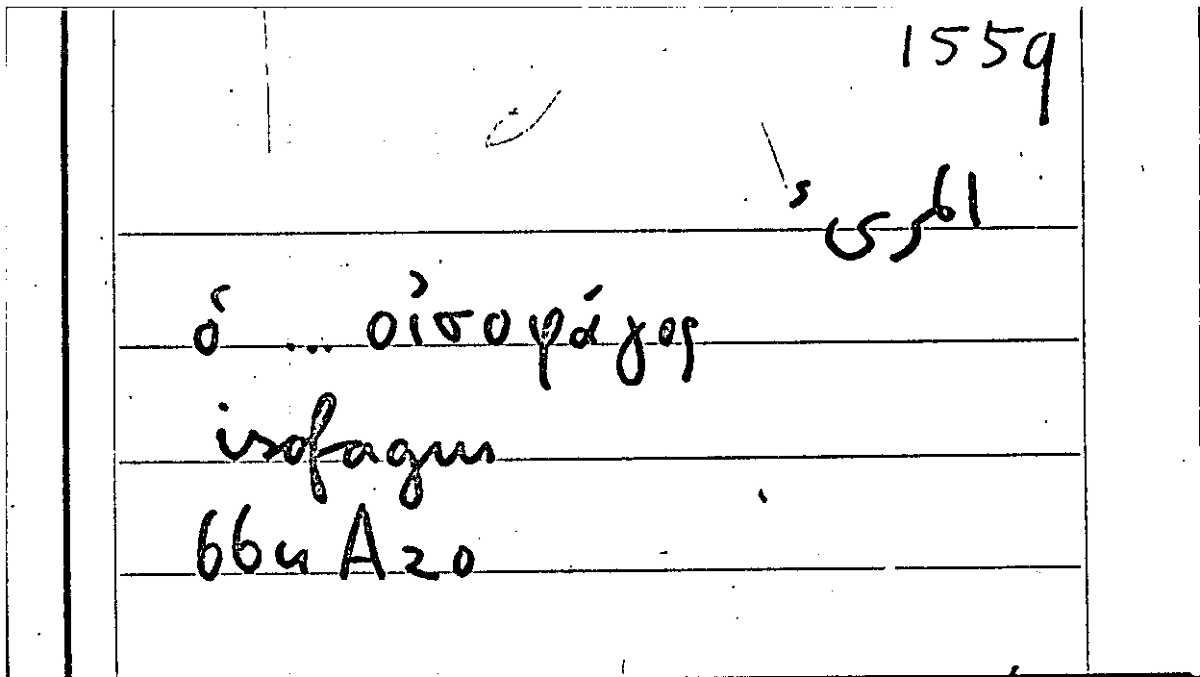 1559
ὁ ... οἰσοφάγος
isofagus
66u A 20